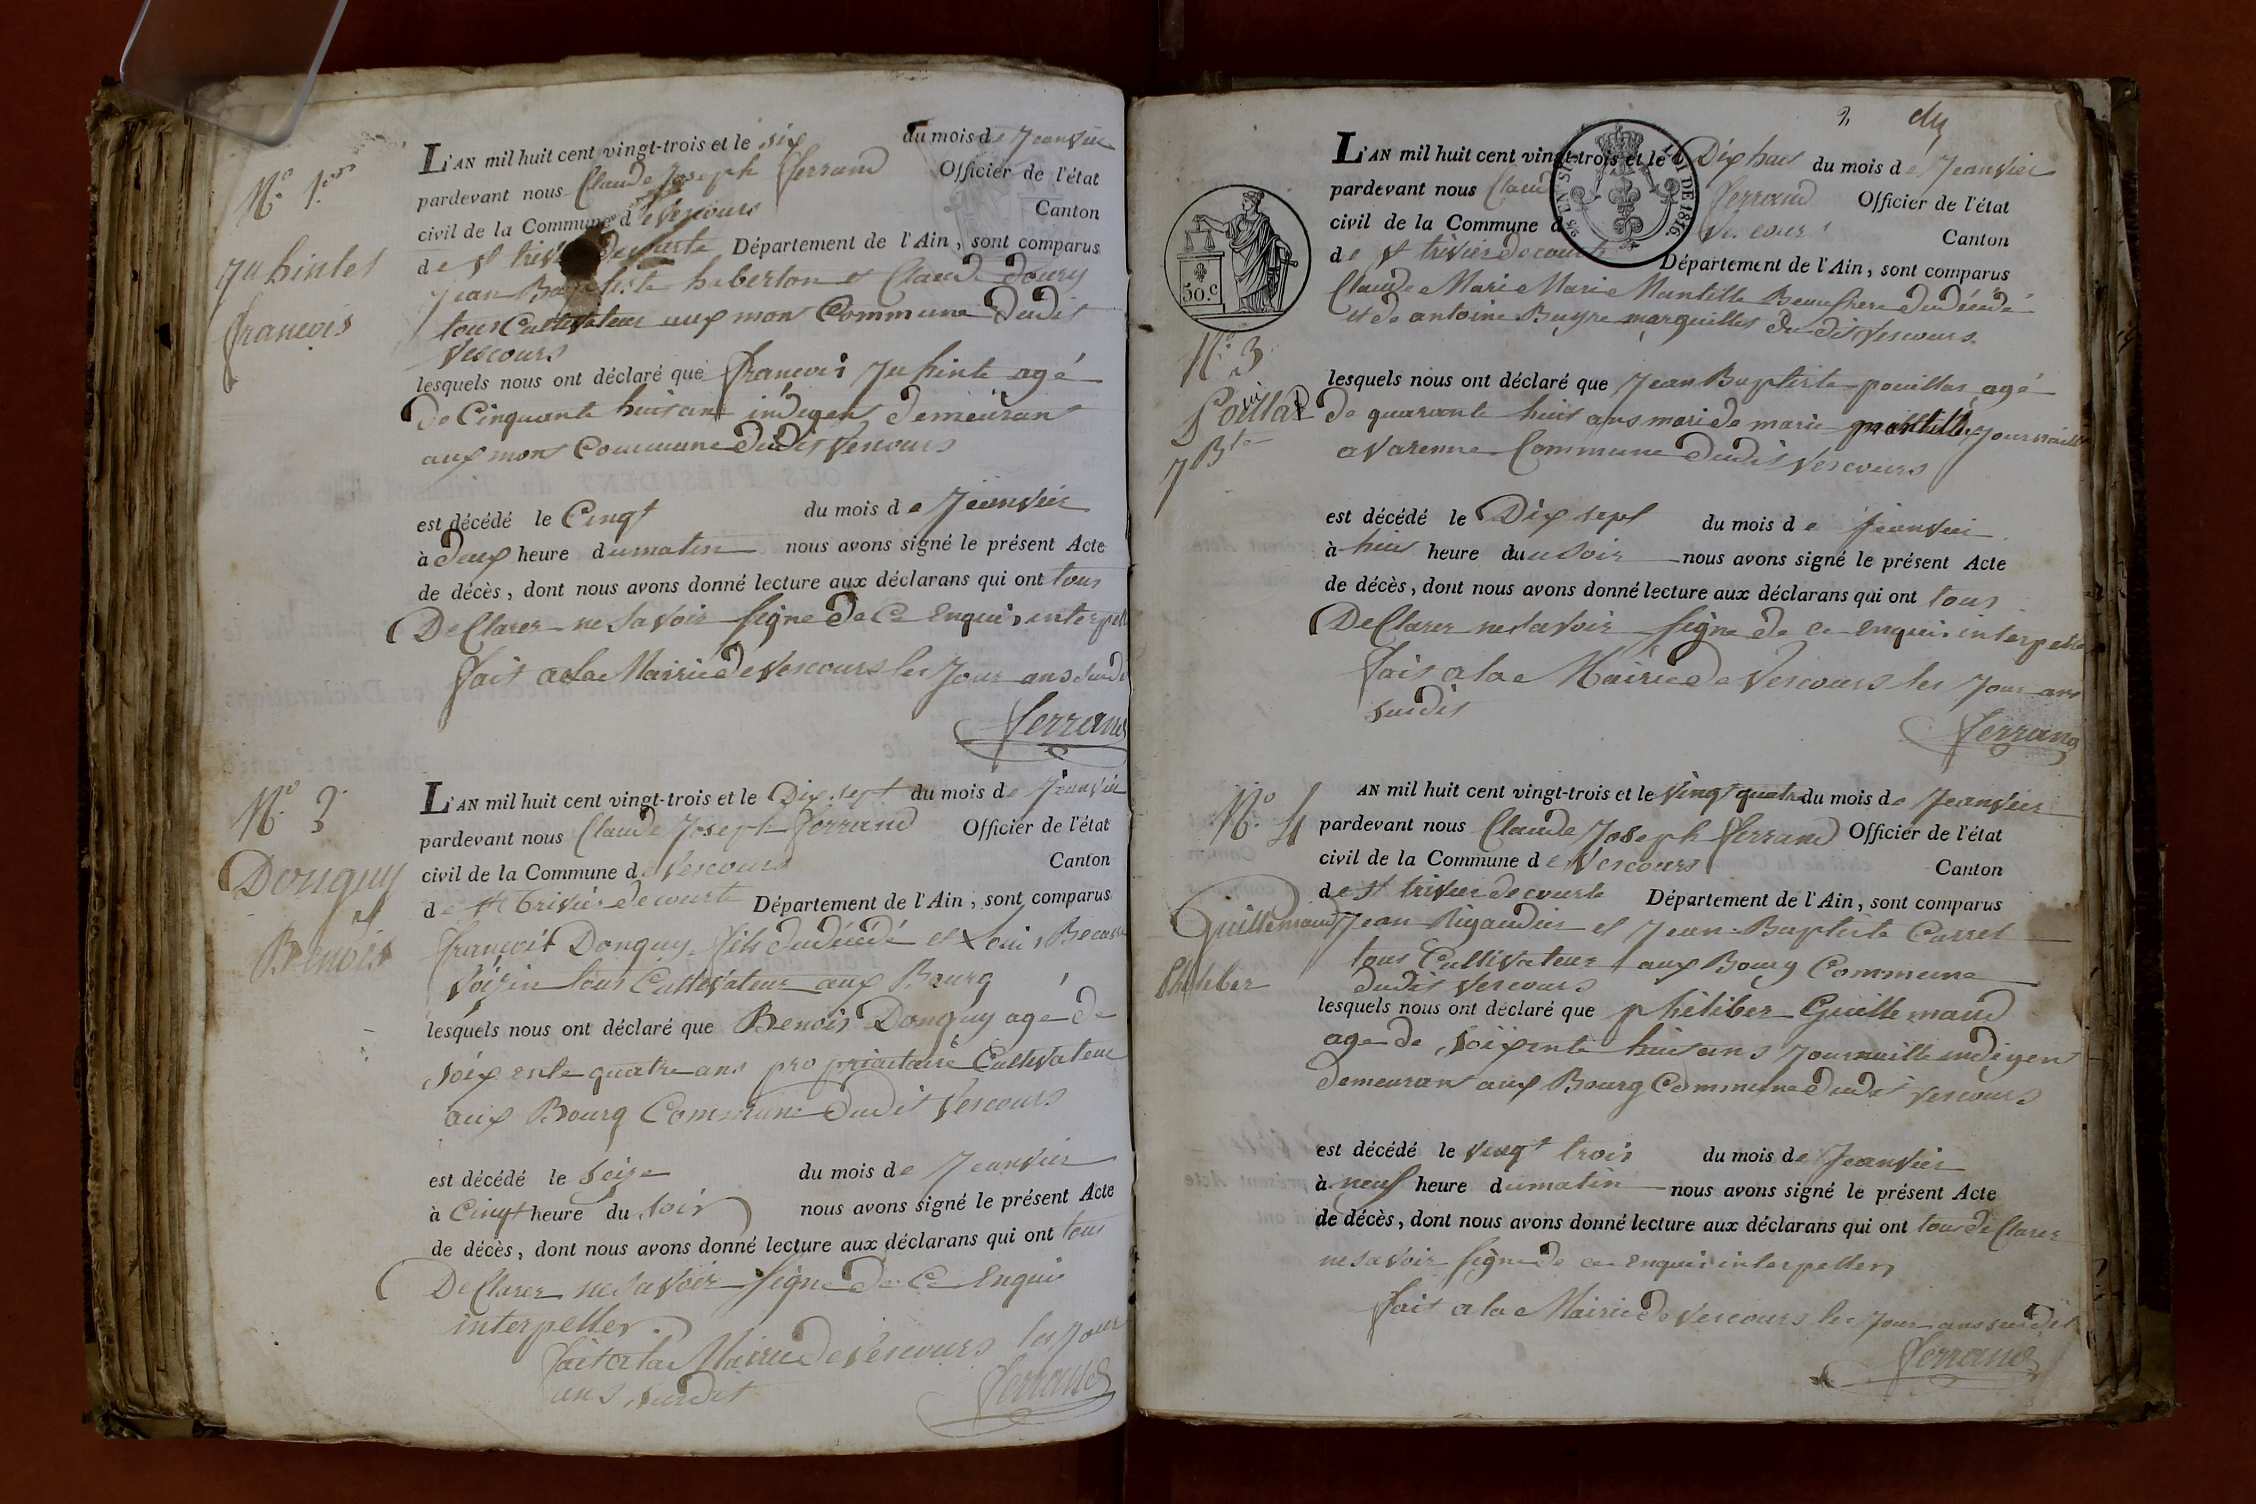 N.° 1.er
Juhintet
francois
L'AN mil huit cent vingt-trois et le six du mois de Jeanvier
pardevant nous Claude Joseph ferrand Officier de l'état
civil de la Commune de Vescours Canton
de st trivier de courte Département de l'Ain, sont comparus
Jean Baptiste et Claude
tous Cultivateur aux mons Commune dudit
Vescours
lesquels nous ont déclaré que francois agé
de Cinquante huit ans indigens demeurans
aux mons Commune dudit Vescours
est décédé le Cinqt du mois de Jeanvier
à deux heure du matin nous avons signé le présent Acte
de décès, dont nous avons donné lecture aux déclarans qui ont tous
DeClarer ne savoir signe de Ce Enquis interpell
fait a la Mairie de Vescours les Jour ans sudi
ferrand
N.°
Donguy
Benoit
L'AN mil huit cent vingt-trois et le Dix sept du mois de Jeanvier
pardevant nous Claude Joseph ferrand Officier de l'état
civil de la Commune de Vescours Canton
de st trivier de courte Département de l'Ain, sont comparus
francoit Donguy fils du décédé et Loui
Voisin tous Cultivateur aux Bourg
lesquels nous ont déclaré que Benoit Donguy agé de
soixente quatre ans propriaitaire Cultivateur
aux Bourg Commune dudit Vescours
est décédé le seize du mois de Jeanvier
à Cinqt heure du soir nous avons signé le présent Acte
de décès, dont nous avons donné lecture aux déclarans qui ont tous
DeClarer ne savoir signe de Ce Enquis
interpeller
fait a la Mairie de Vescours les Jour
ans sudit
ferrand
2
LOI DE 1816
50.c
N.° 3
Pouillat
J Bte
L'AN mil huit cent vingt-trois et le Dix huit du mois de Jeanvier
pardevant nous Claud ferrand Officier de l'état
civil de la Commune d Vescours Canton
de st trivier de courte Département de l'Ain, sont comparus
Claude Marie Marie Mantille Beaufrere du décédé
et de antoine Buyre marguillet du dit Vescours
lesquels nous ont déclaré que Jean Baptiste pouillat agé
de quarante huit ans mari de marie mantille Journaille
a Varenne Commune dudit Vescours
est décédé le Dix sept du mois de Jeanvier
à huit heure du soir nous avons signé le présent Acte
de décès, dont nous avons donné lecture aux déclarans qui ont tous
DeClarer ne savoir signe de ce enquis interpelle
fait a la Mairie de Vescours les Jour ans
sudit
ferrand
N.° 4
Guillemaud
Phileber
AN mil huit cent vingt-trois et le vingt quatre du mois de Jeanvier
pardevant nous Claude Joseph ferrand Officier de l'état
civil de la Commune de Vescours Canton
de st trivier de courte Département de l'Ain, sont comparus
Jean Rigaudier et Jean Baptiste Carret
tous Cultivateur aux Bourg Commune
dudit Vescours
lesquels nous ont déclaré que phileber Guillemaud
age de soixente huit ans Journaille indigens
demeurans aux Bourg Commune dudit Vescours
est décédé le vingt trois du mois de Jeanvier
à neuf heure du matin nous avons signé le présent Acte
de décès, dont nous avons donné lecture aux déclarans qui ont tous deClarer
ne savoir signe de ce enquis interpeller
fait a la Mairie de Vescours les Jour ans sudit
ferrand